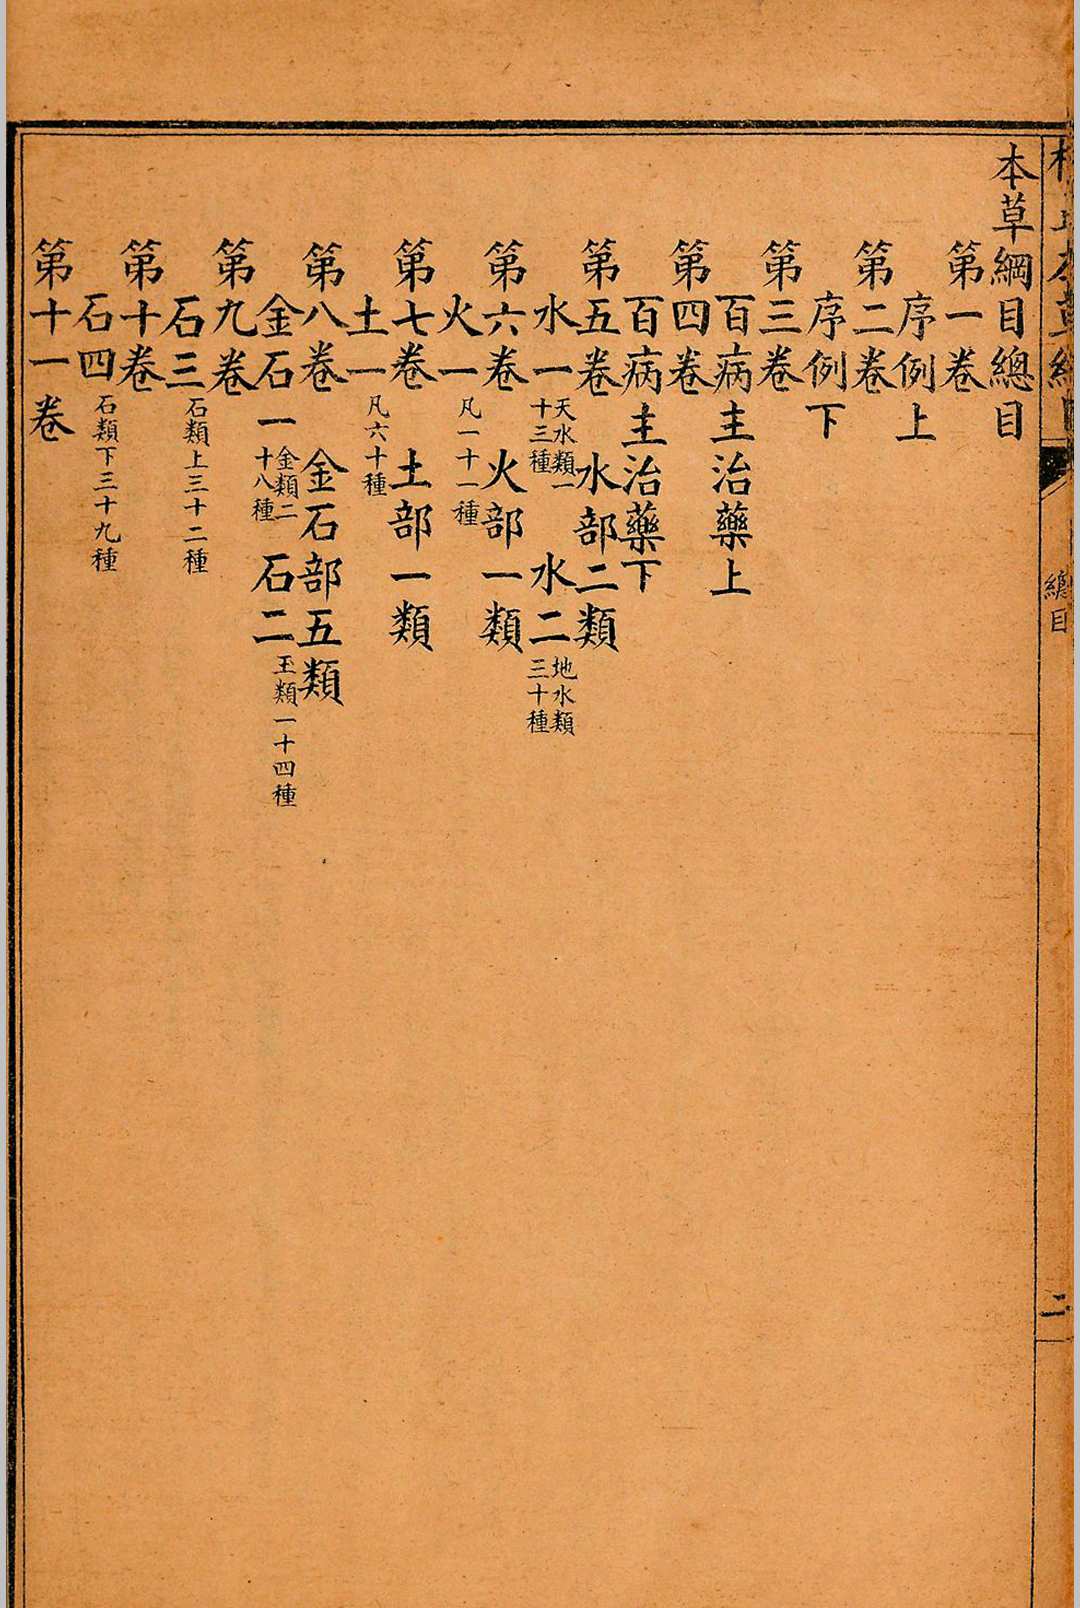 總目
二
本草綱目總目
第一卷
序例上
第二卷
序例下
第三卷
百病主治藥上
第四卷
百病主治藥下
第五卷 水部二類
水一 天水類一十三種 水二 地水類三十種
第六卷 火部一類
火一 凡一十一種
第七卷 土部一類
土一 凡六十種
第八卷 金石部五類
金石一 金類二十八種 石二 玉類一十四種
第九卷
石三 石類上三十二種
第十卷
石四 石類下三十九種
第十一卷